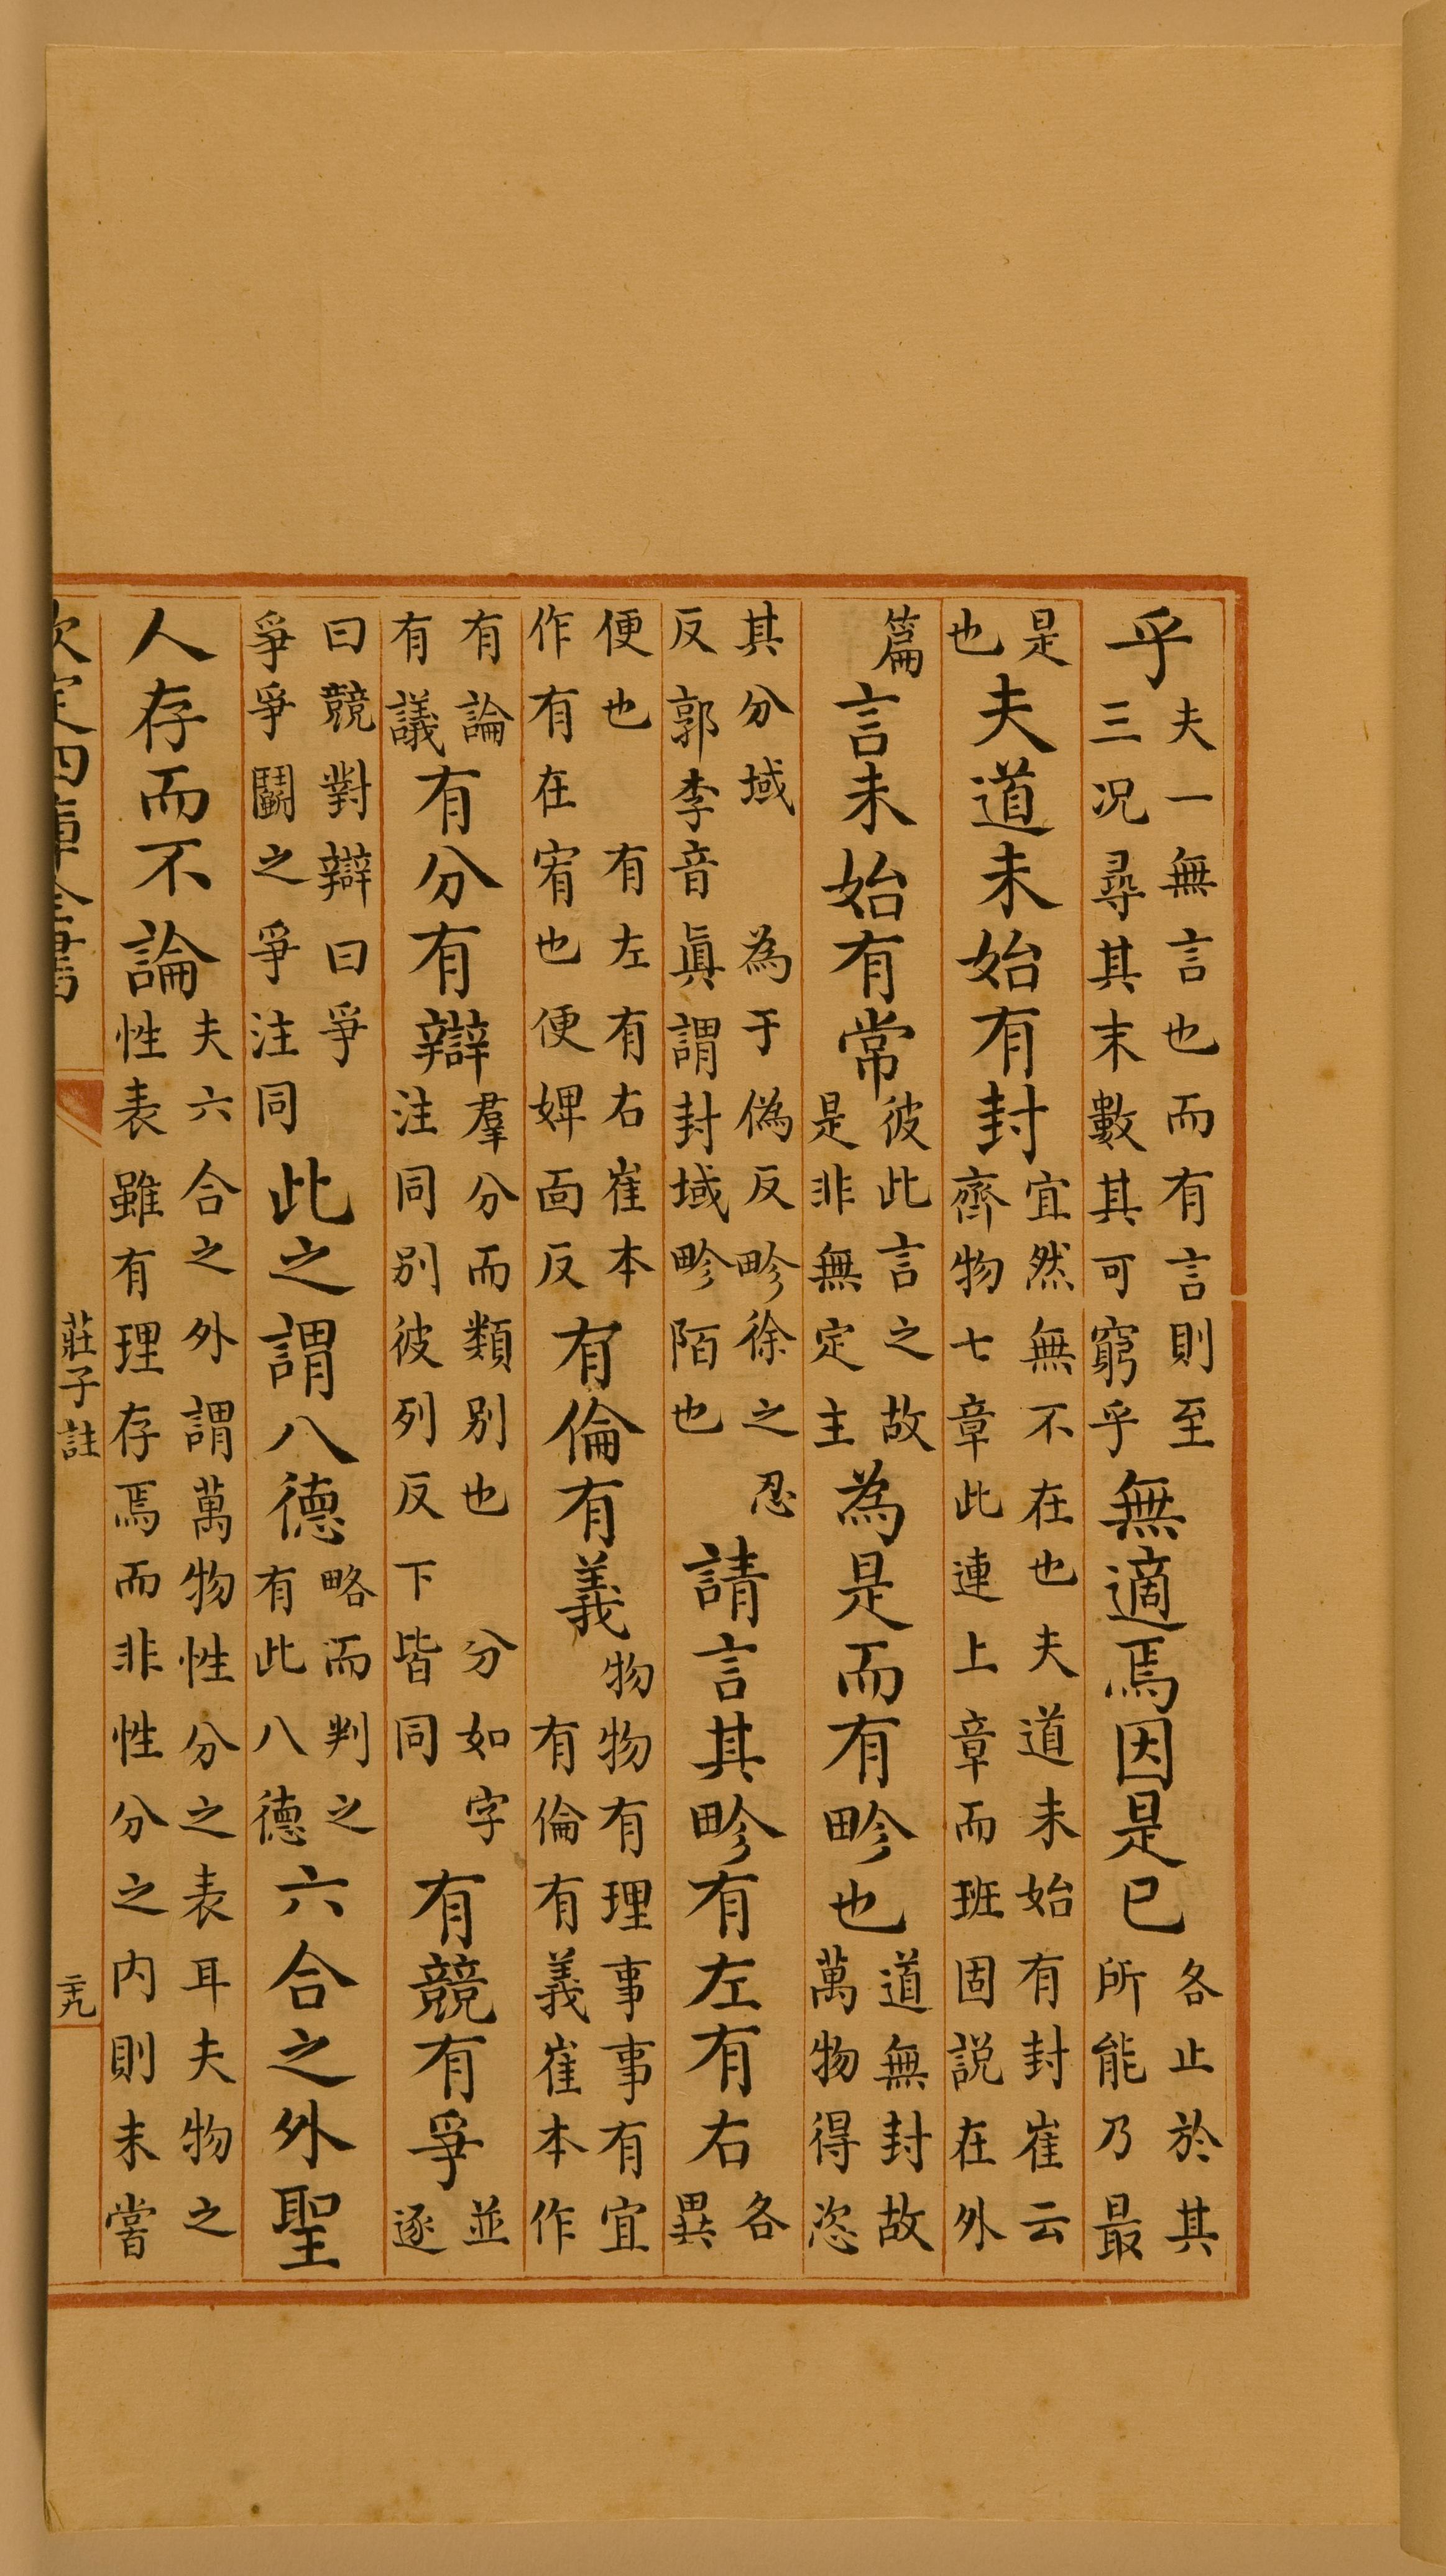 乎夫一無言也而有言則至三况尋其末數其可窮乎無適焉因是已各止於其所能乃最
是也夫道未始有封宜然無不在也夫道未始有封崔云齊物七章此連上章而班固説在外
篇言未始有常彼此言之故是非無定主為是而有畛也道無封故萬物得恣
其分域 為于偽反畛徐之忍反郭李音眞謂封域畛陌也請言其畛有左有右各異
便也 有左有右崔本作有在宥也便婢面反有倫有義物物有理事事有宜有倫有義崔本作
有論有議有分有辯羣分而類别也 分如字注同别彼列反下皆同有競有爭並逐
曰競對辯曰爭爭爭鬭之爭注同此之謂八德略而判之有此八德六合之外聖
人存而不論夫六合之外謂萬物性分之表耳夫物之性表雖有理存焉而非性分之内則未嘗
欽定四庫全書
莊子註
二九